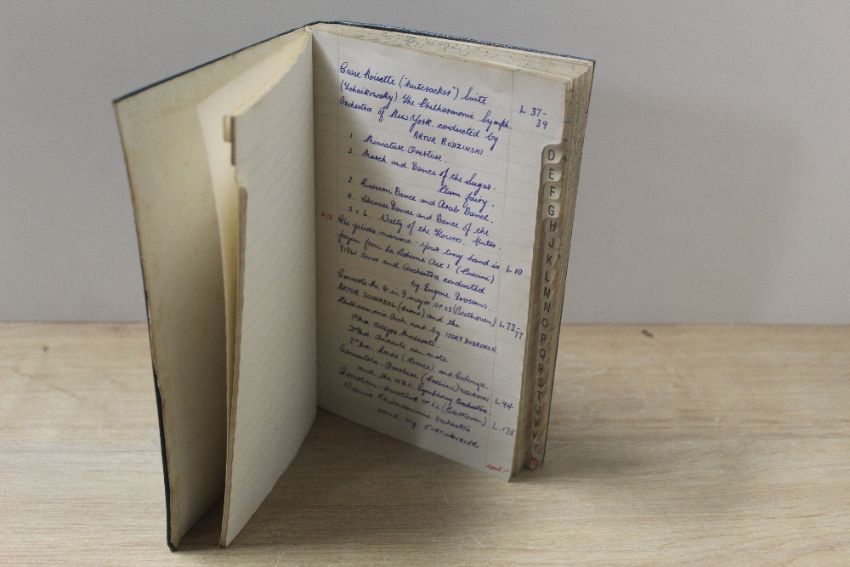 Casse Noisette ("Nutcracker") Suite
(Tchaikowsky) The Philharmonic Symph. L 37-
Orchestra of New York conducted by 39
ARTUR RODZINSKI
1. Miniature Overture.
2. March and Dance of the Sugar-
Plum fairy.
3. Russian Dance and Arab Dance.
4. Chinese Dance and Dance of the
5 + 6. Waltz of the Flowers. Flutes.
Che gelida manina: Your tiny hand is L.10
frozen from La Boheme Act 1. (Puccini)
and Orchestra conducted
by Eugene Goossens.
Concerto No. 4 in G major OP. 58 (Beethoven) L 73-
ARTUR SCHNABEL (Piano) and the 77
Philharmonia Orch. cond. by ISSAY DOBROWEN
1st Mov. Allegro Moderato.
2nd Mov. Andante con moto.
3rd Mov. Rondo (Vivace) and Cadenza.
Overture (Rossini) L 94
and the N.B.C. Symphony Orchestra
Overture OP. 62 (Beethoven) L. 133
Philharmonic Orchestra
cond. by FURTWANGLER
D
E
F
G
H
J
K
L
M
N
O
P
Q
R
S
T
U
V
W